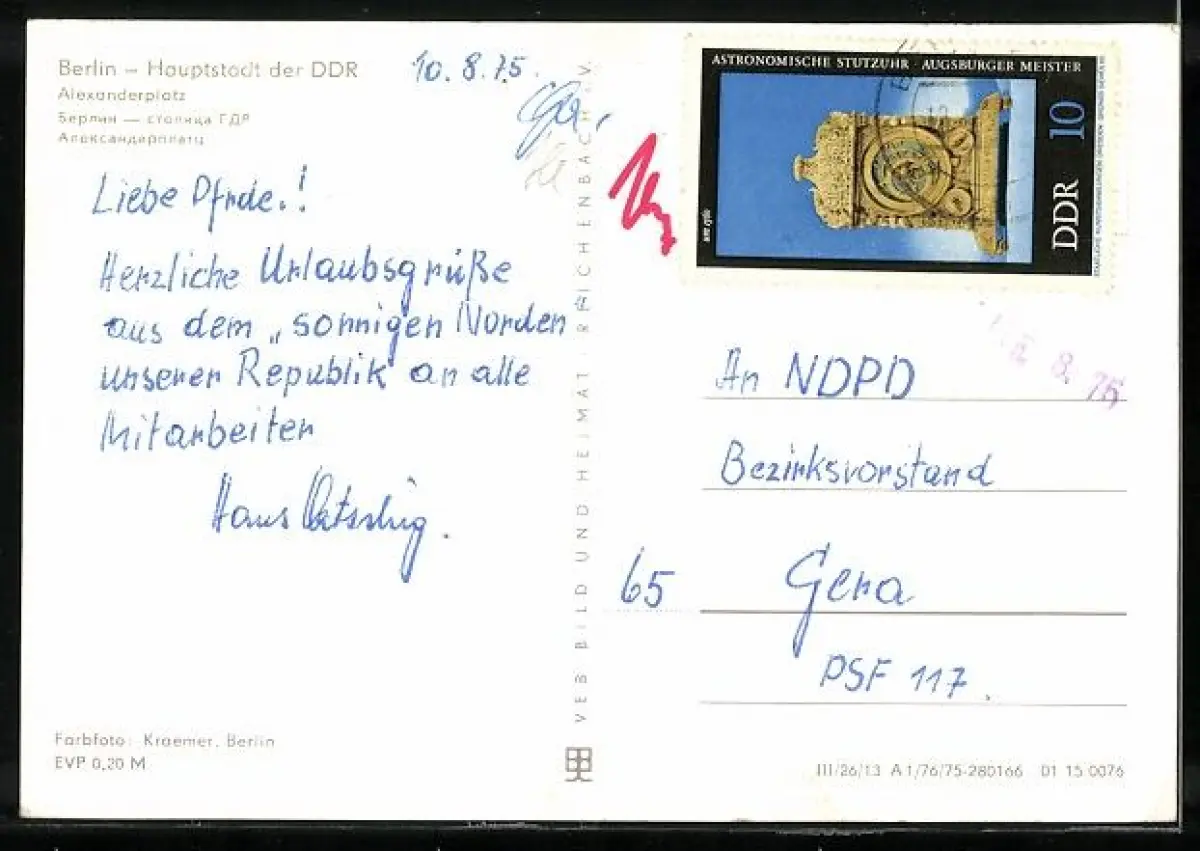 Berlin – Hauptstadt der DDR
Alexanderplatz
Берлин — столица ГДР
Александерплатц
10. 8. 75.
Liebe Pfrde.!
Herzliche Urlaubsgrüße
aus dem „sonnigen Norden
unserer Republik" an alle
Mitarbeiter
Hans
Farbfoto: Kraemer, Berlin
EVP 0,20 M
VEB BILD UND HEIMAT REICHENBACH I. V.
ASTRONOMISCHE STUTZUHR · AUGSBURGER MEISTER
um 1560
DDR 10
8. 75
An NDPD
Bezirksvorstand
65 Gera
PSF 117.
III/26/13 A 1/76/75-280166 01 15 0076